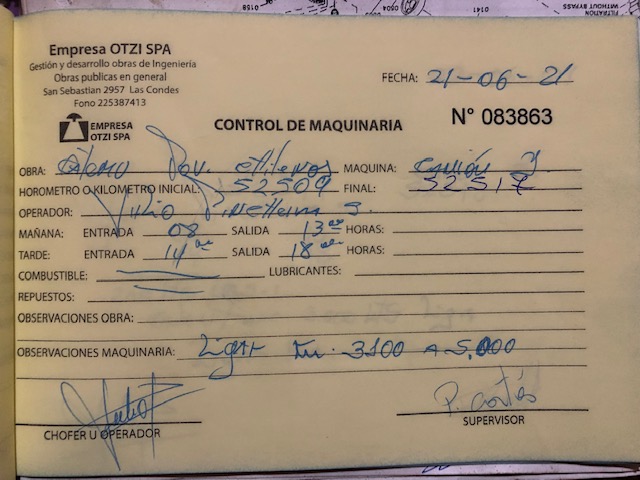 Empresa OTZI SPA
Gestión y desarrollo obras de Ingeniería
Obras publicas en general
San Sebastián 2957 Las Condes
Fono 225387413
FECHA: 21-06-21
EMPRESA
OTZI SPA
CONTROL DE MAQUINARIA
N° 083863
OBRA: MAQUINA: Camión
HOROMETRO O KILOMETRO INICIAL: 52500 FINAL: 52517
OPERADOR: Julio
MAÑANA: ENTRADA 08 SALIDA 13 00 HORAS:
TARDE: ENTRADA 14 00 SALIDA 18 00 HORAS:
COMBUSTIBLE: LUBRICANTES:
REPUESTOS:
OBSERVACIONES OBRA:
OBSERVACIONES MAQUINARIA: 3100 A 5,000
CHOFER U OPERADOR
P. Cortés
SUPERVISOR
0158
0004
0141
FILTRATION
WITHOUT BYPASS